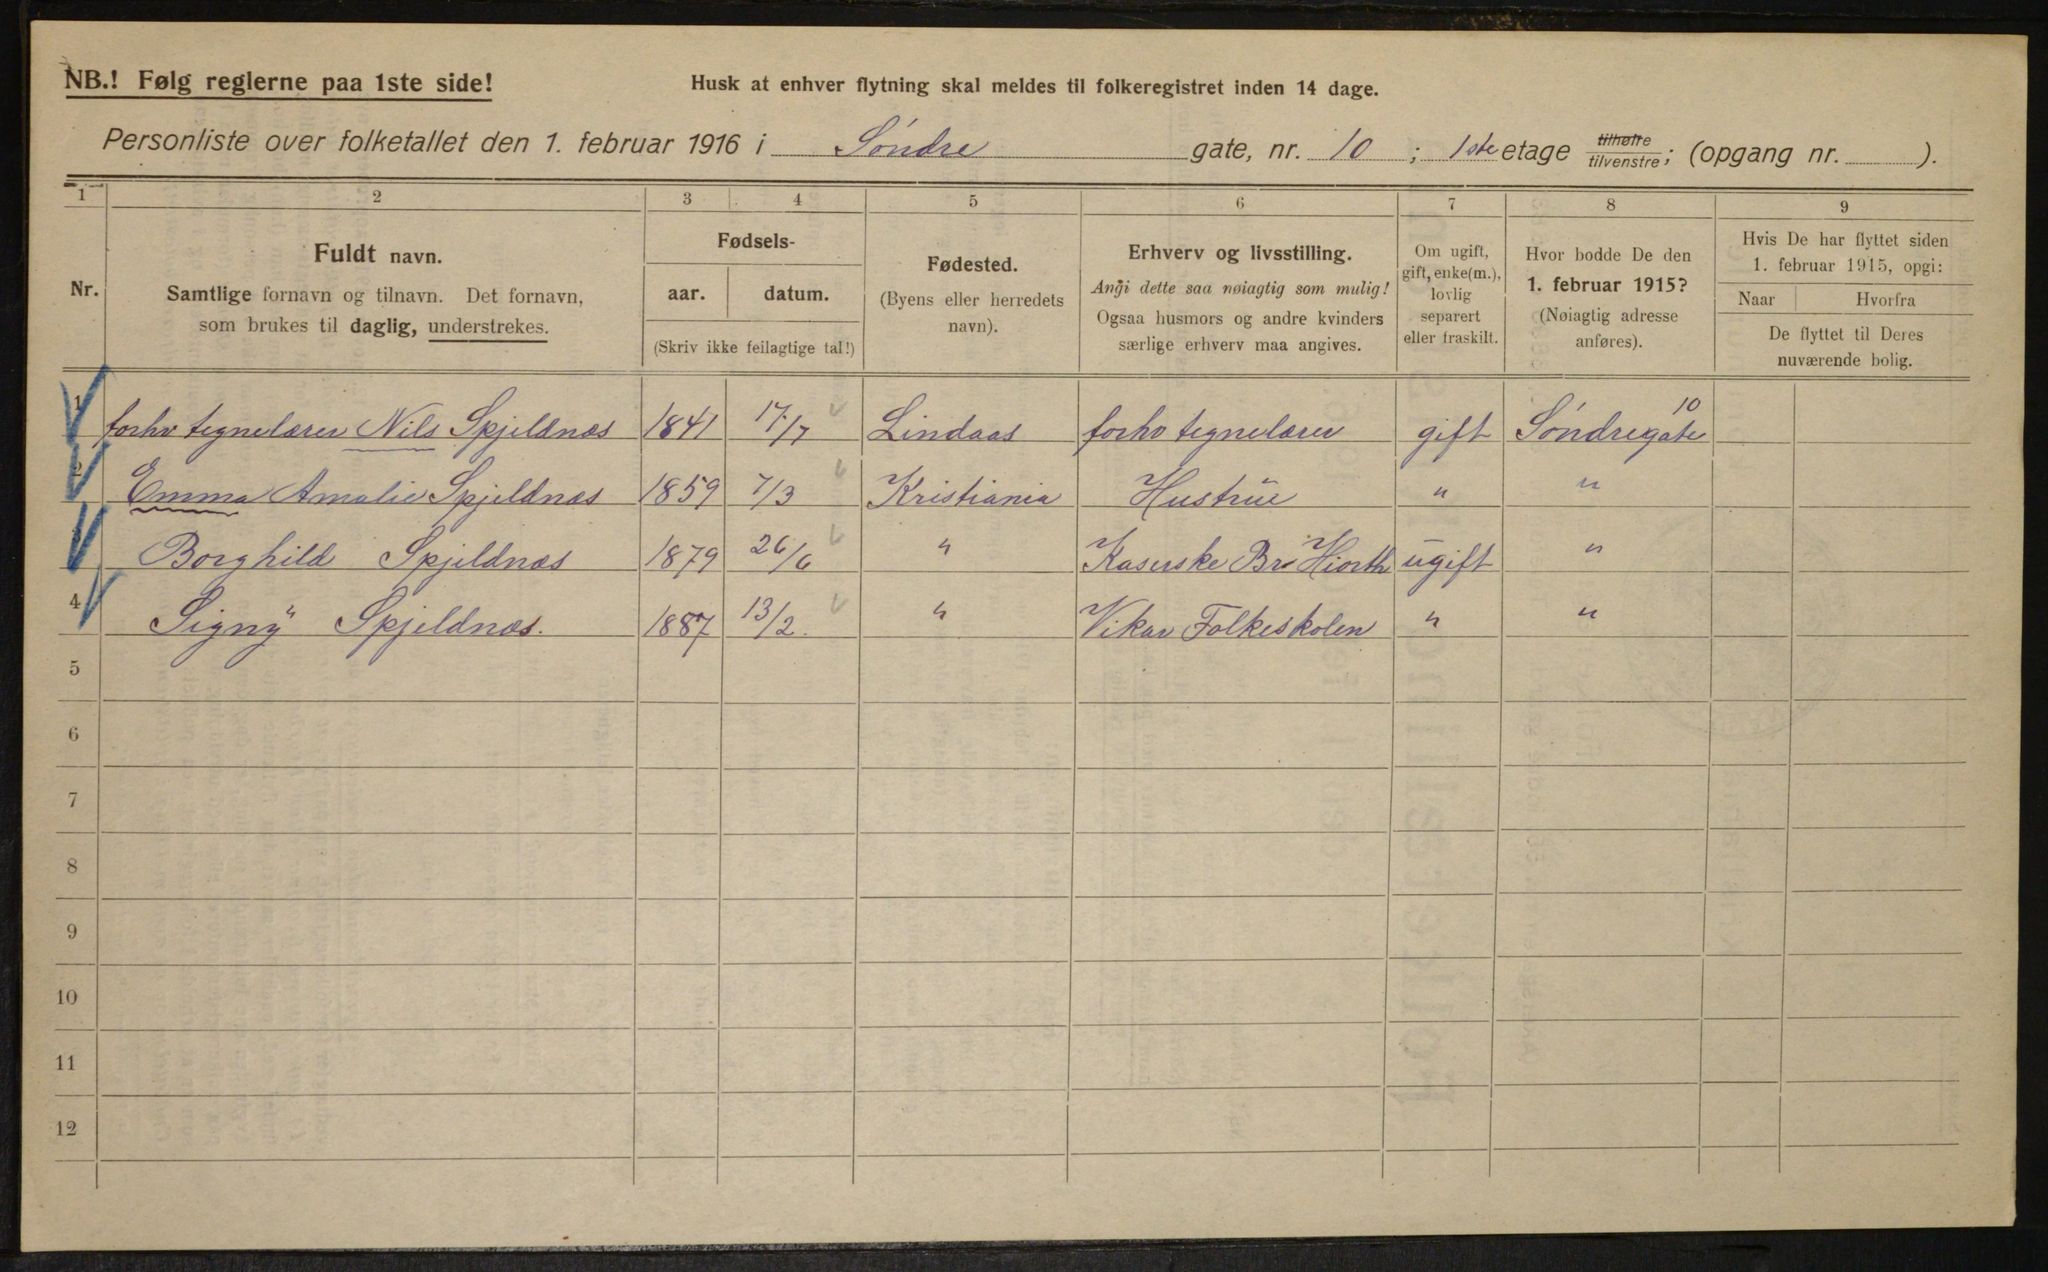 NB.! Følg reglerne paa 1ste side!
Husk at enhver flytning skal meldes til folkeregistret inden 14 dage.
Personliste over folketallet den 1. februar 1916 i Søndre gate, nr. 10; 1ste etage tilhøire tilvenstre; (opgang nr. ).
1 2 3 4 5 6 7 8 9
Nr.
Fuldt navn.
Samtlige fornavn og tilnavn. Det fornavn,
som brukes til daglig, understrekes.
Fødsels-
aar. datum.
(Skriv ikke feilagtige tal!)
Fødested.
(Byens eller herredets
navn).
Erhverv og livsstilling.
Angi dette saa nøiagtig som mulig!
Ogsaa husmors og andre kvinders
særlige erhverv maa angives.
Om ugift,
gift, enke(m.),
lovlig
separert
eller fraskilt.
Hvor bodde De den
1. februar 1915?
(Nøiagtig adresse
anføres).
Hvis De har flyttet siden
1. februar 1915, opgi:
Naar Hvorfra
De flyttet til Deres
nuværende bolig.
1 forhv tegnelærer Nils Spjeldnæs 1841 17/7 Lindaas forhv tegnelærer gift Søndregate 10
2 Emma Amalie Spjeldnæs 1859 7/3 Kristiania Hustrue " "
3 Borghild Spjeldnæs 1879 26/6 " Kaserske Br Hiorth ugift "
4 Signy Spjeldnæs. 1887 13/2. " Vikar Folkeskolen " "
5
6
7
8
9
10
11
12